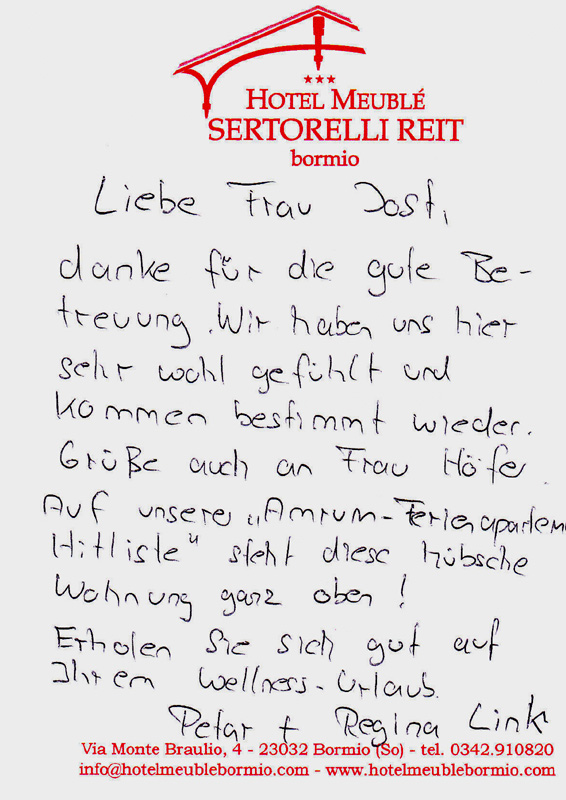 HOTEL MEUBLÉ
SERTORELLI REIT
bormio
Liebe Frau Jost,
danke für die gute Be-
treuung. Wir haben uns hier
sehr wohl gefühlt und
kommen bestimmt wieder.
Grüße auch an Frau Höfer
Auf unserer „Amrum-Ferienapartem
Hitliste“ steht diese hübsche
Wohnung ganz oben!
Erholen Sie sich gut auf
Ihrem Wellness-Urlaub.
Petar + Regina Link
Via Monte Braulio, 4 - 23032 Bormio (So) - tel. 0342.910820
info@hotelmeublebormio.com - www.hotelmeublebormio.com